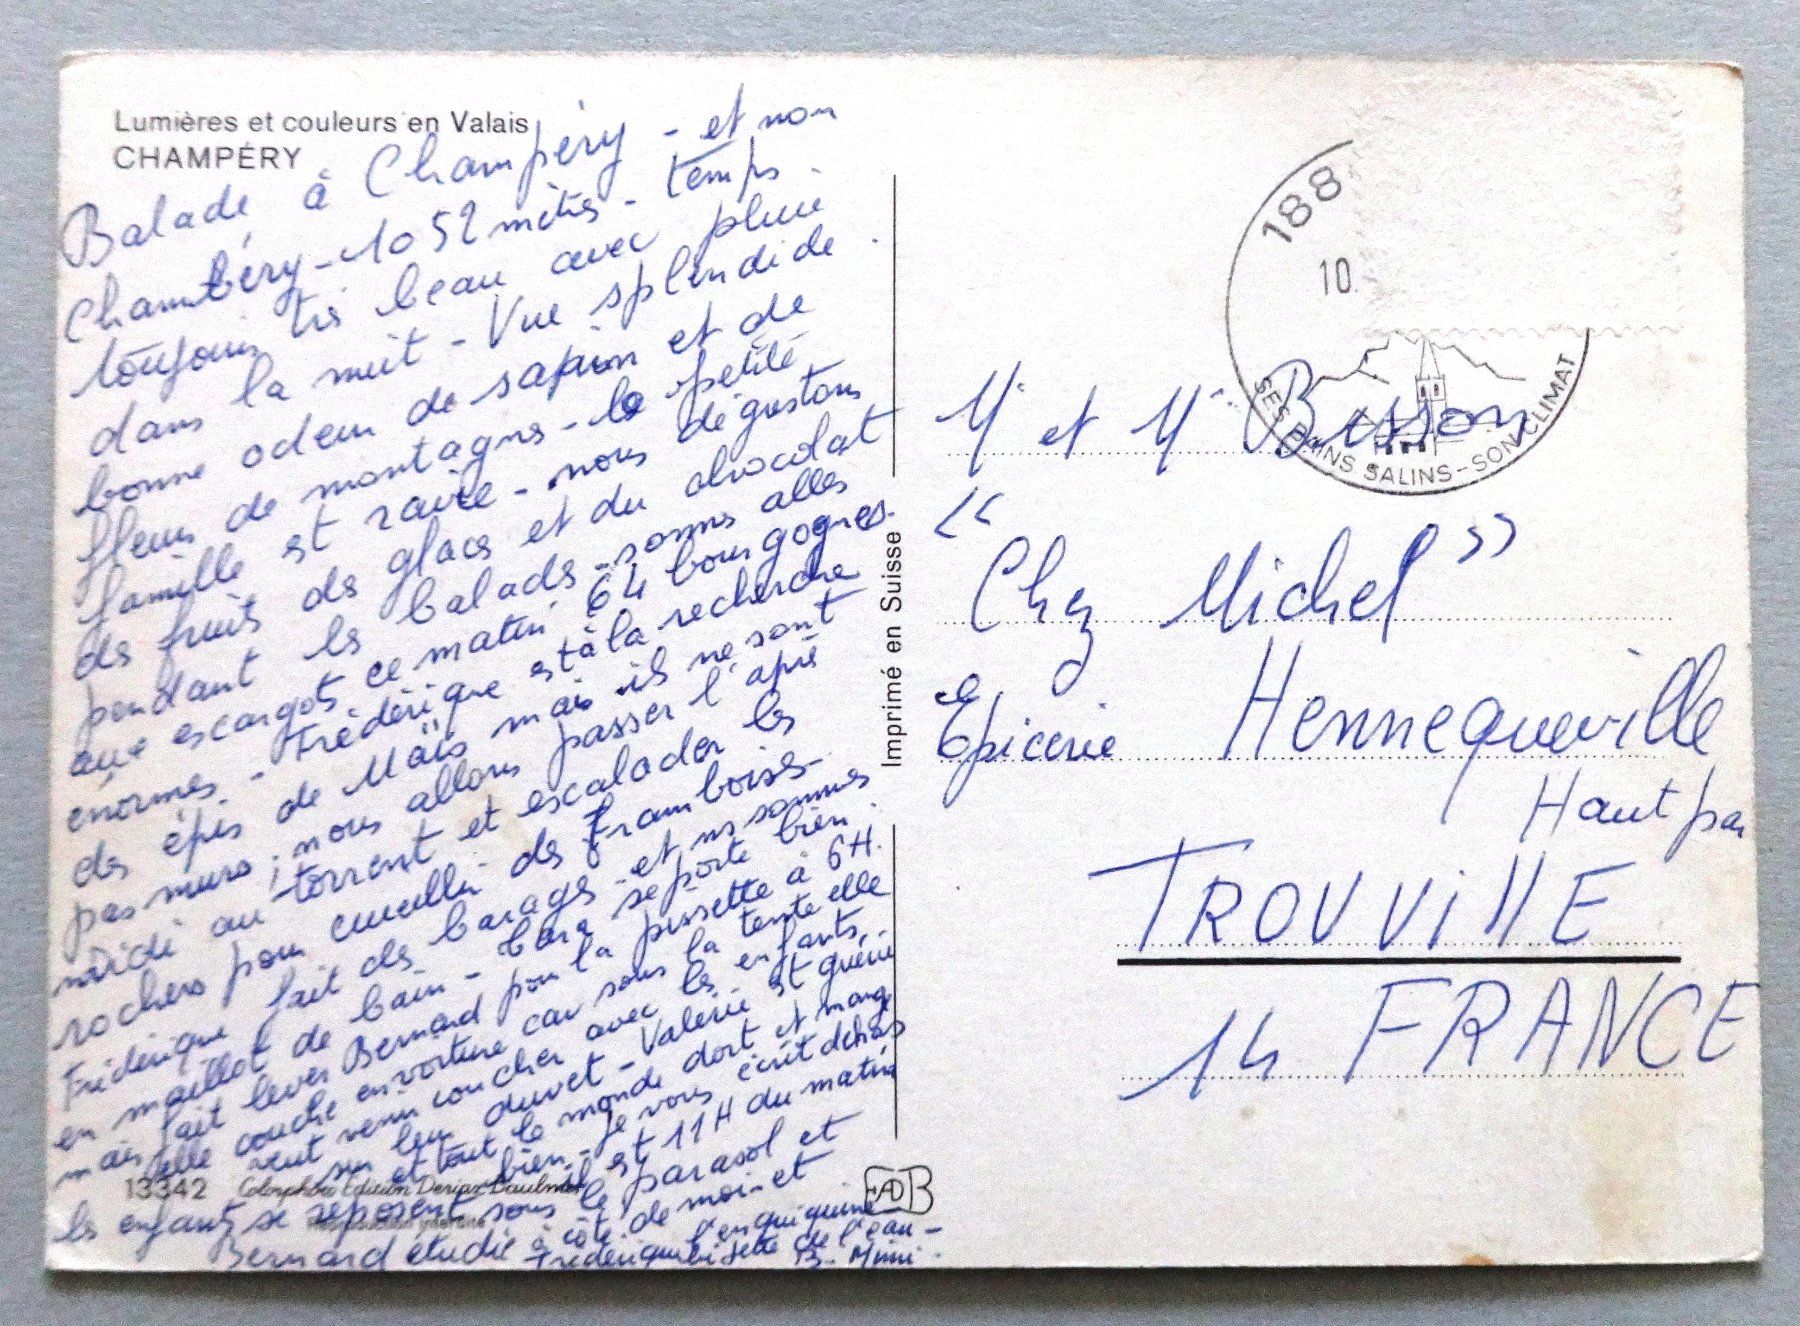 Lumières et couleurs en Valais
CHAMPÉRY
Balade à Champéry - et non
Chambéry - 1052 mètres - temps
toujours très beau avec pluie
dans la nuit - Vue splendide.
bonne odeur de sapin et de
fleurs de montagne - la petite
famille est ravie - nous dégustons
des fruits des glaces et du chocolat
pendant les balades - sommes allés
aux escargots ce matin 64 bourgognes
énormes - Frédérique est à la recherche
des épis de Maïs mais ils ne sont
pas murs ; nous allons passer l'après
midi au torrent et escalader les
rochers pour cueillir des framboises -
Frédérique fait des barages - et ns sommes
en maillot de bain - se porte bien
mais fait lever Bernard pour la pissette à 6H.
elle couche en voiture car sous la tente elle
veut venir coucher avec les enfants,
sur leur duvet - Valérie est guérie
et tout le monde dort et mange
bien - Je vous écrit dehors
il est 11H du matin
les enfants se reposent sous le parasol et
Bernard étudie à côté de moi - et
Frédérique l'enquiquine
de l'eau -
B. Mimi.
13342
Imprimé en Suisse
188
10.
SES BAINS SALINS - SON CLIMAT
M. et Mme Bisson
"Chez Michel"
Epicerie Hennequeville
Haut par
TROUVILLE
14 FRANCE